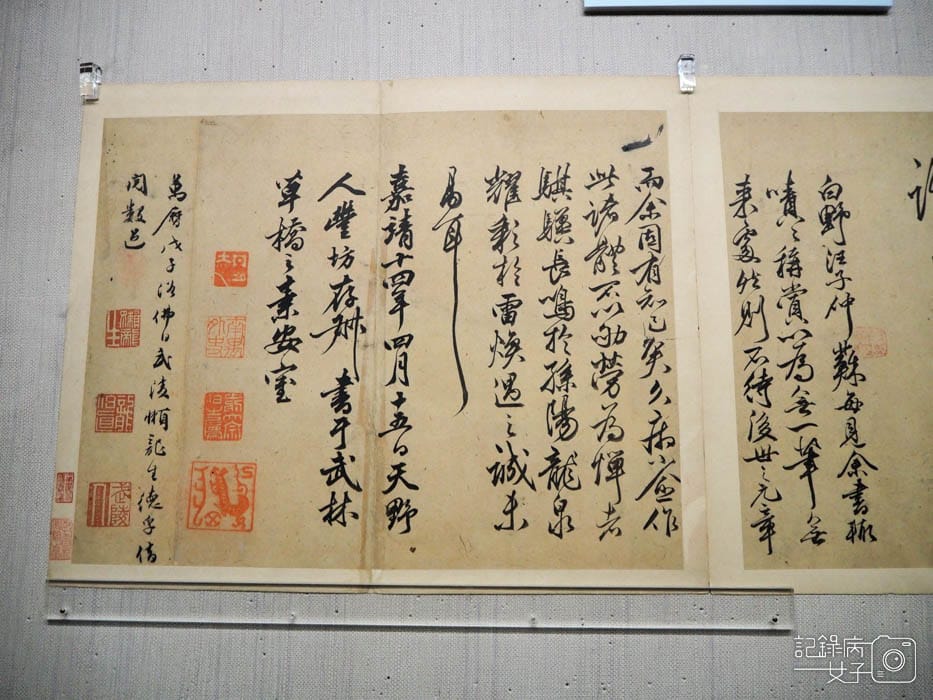 白野汪子仲蘇每見余書輒
嘖嘖稱賞以為無一筆無
来處然則不待後世之元章
而余固有知己矣久病小愈作
此諸體不以勤勞為憚者
騏驥長鳴於孫陽龍泉
耀彩於雷煥遇之誠未
易耳
嘉靖十四年四月十五日天野
人豐坊存𠛬書于武林
草橋之素安室
萬曆戊子浴佛日武陵懶龍生德孚借
閱數過
記錄病
女子